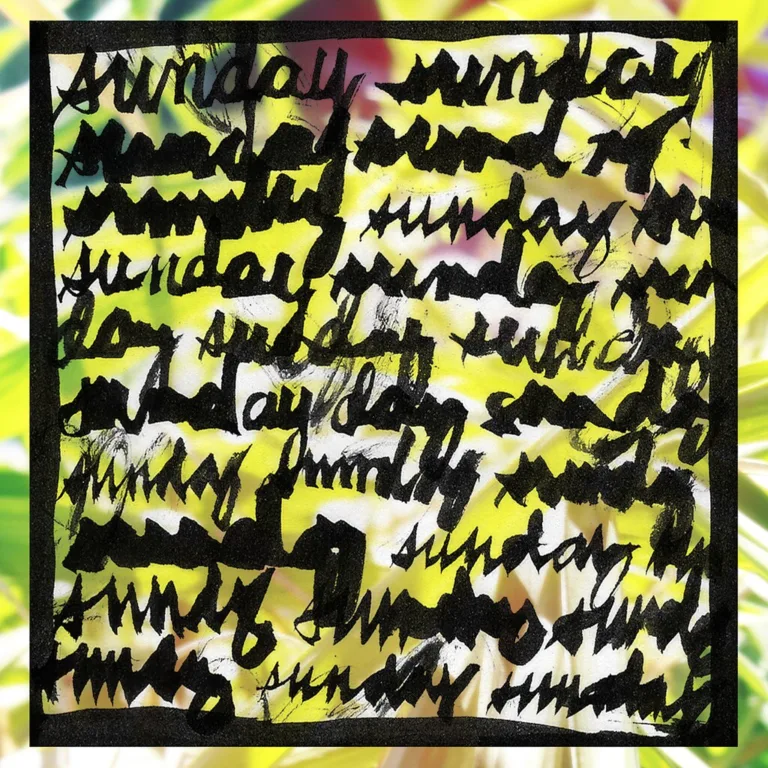 sunday sunday
sunday sund
sunday sunday su
sunday sunday sun
day sunday sunday
sunday day sunday
sunday sunday sunday
sunday sunday
sunday sunday sund
sunday sunday sunday